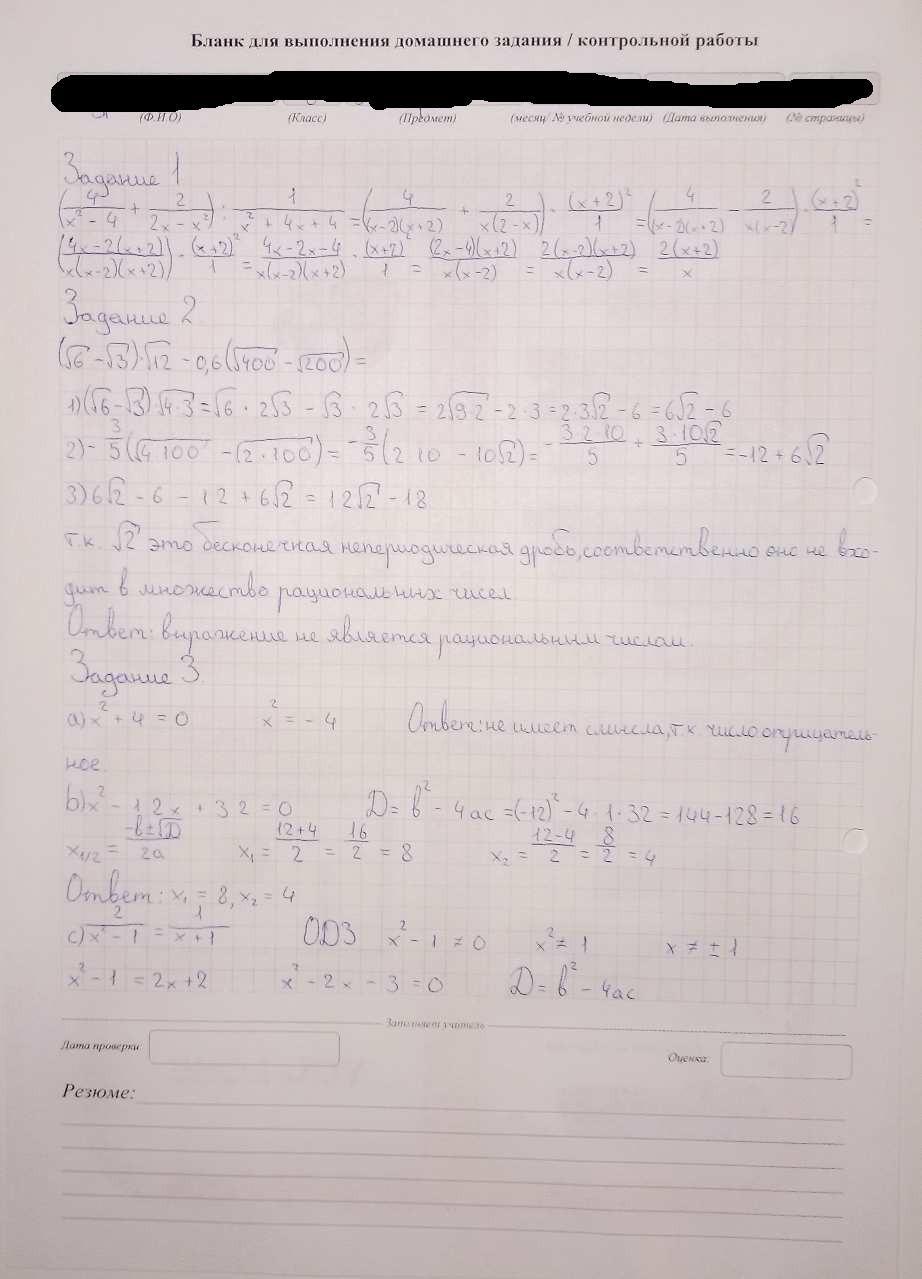 Бланк для выполнения домашнего задания / контрольной работы
(Ф.И.О) (Класс) (Предмет) (месяц/ № учебной недели) (Дата выполнения) (№ страницы)
Задание 1
(4/(x² - 4) + 2/(2x - x²)) : 1/(x² + 4x + 4) = (4/((x-2)(x+2)) + 2/(x(2-x))) · (x+2)²/1 = (4/((x-2)(x+2)) - 2/(x(x-2))) · (x+2)²/1 =
((4x-2(x+2))/(x(x-2)(x+2))) · (x+2)²/1 = (4x-2x-4)/(x(x-2)(x+2)) · (x+2)²/1 = (2x-4)(x+2)/(x(x-2)) = 2(x-2)(x+2)/(x(x-2)) = 2(x+2)/x
Задание 2
(√6 - √3)·√12 - 0,6(√400 - √200) =
1)(√6 - √3)·√4·3 = √6 · 2√3 - √3 · 2√3 = 2√9·2 - 2·3 = 2·3√2 - 6 = 6√2 - 6
2) - 3/5(√4·100 - √(2·100)) = -3/5(2·10 - 10√2) = - 3·2·10/5 + 3·10√2/5 = -12 + 6√2
3) 6√2 - 6 - 12 + 6√2 = 12√2 - 18
т.к. √2 это бесконечная непериодическая дробь, соответственно оно не вхо-
дит в множество рациональных чисел.
Ответ: выражение не является рациональным числом.
Задание 3
a) x² + 4 = 0 x² = - 4 Ответ: не имеет смысла, т.к. число отрицатель-
ное.
b) x² - 12x + 32 = 0 D = b² - 4ac = (-12)² - 4·1·32 = 144-128 = 16
x₁/₂ = (-b±√D)/2a x₁ = (12+4)/2 = 16/2 = 8 x₂ = (12-4)/2 = 8/2 = 4
Ответ: x₁ = 8, x₂ = 4
c) 2/(x² - 1) = 1/(x+1) ОДЗ x² - 1 ≠ 0 x² ≠ 1 x ≠ ± 1
x² - 1 = 2x + 2 x² - 2x - 3 = 0 D = b² - 4ac
Заполняет учитель
Дата проверки: Оценка:
Резюме: